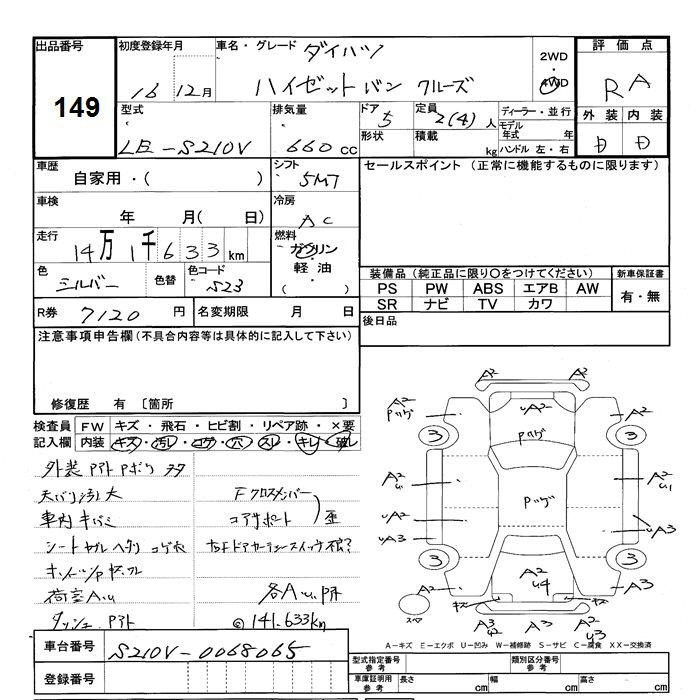 出品番号
149
初度登録年月
16 12月
車名・グレード ダイハツ
ハイゼットバン クルーズ
2WD
・
4WD
評価点
RA
外装 内装
D D
型式
LE-S210V
排気量
660 cc
ドア
5
形状
定員 2(4) 人
積載 kg
ディーラー・並行
モデル年式 年
ハンドル 左・右
車歴
自家用・( )
シフト
5MT
車検
年 月( 日)
冷房
AC
走行
14万1千633km
燃料
ガソリン
軽油
( )
色
シルバー
色替
色コード
S23
R券 7120 円
名変期限 月 日
セールスポイント (正常に機能するものに限ります)
装備品 (純正品に限り○をつけてください)
PS PW ABS エアB AW
SR ナビ TV カワ
新車保証書
有・無
後日品
注意事項申告欄(不具合内容等は具体的に記入して下さい)
修復歴 有 〔箇所 〕
検査員記入欄
FW キズ・飛石・ヒビ割・リペア跡・×要
内装 キズ・汚レ・コゲ・穴・スレ・キレ・破レ
外装 アト ボク
天バリ 大
車内 キバミ
シート コゲ穴
荷室A.u
ダッシュ アト
Fクロスメンバー
コアサポート
歪
各A.u
141.633km
A2
A2
Pハゲ
uA2
Pハゲ
A2
3
3
A2
u
Pハゲ
A2
u1
uA2
uA3
uA3
3
3
A2
A2
u4
A3
キズ
キズ
スペア
A3
u2
A3
A2
u3
A-キズ E-エクボ U-凹み W-補修跡 S-サビ C-腐食 XX-交換済
車台番号 S210V-0068065
登録番号
型式指定番号
参考
類別区分番号
参考
車庫証明用
参考
長さ cm
幅 cm
高さ cm